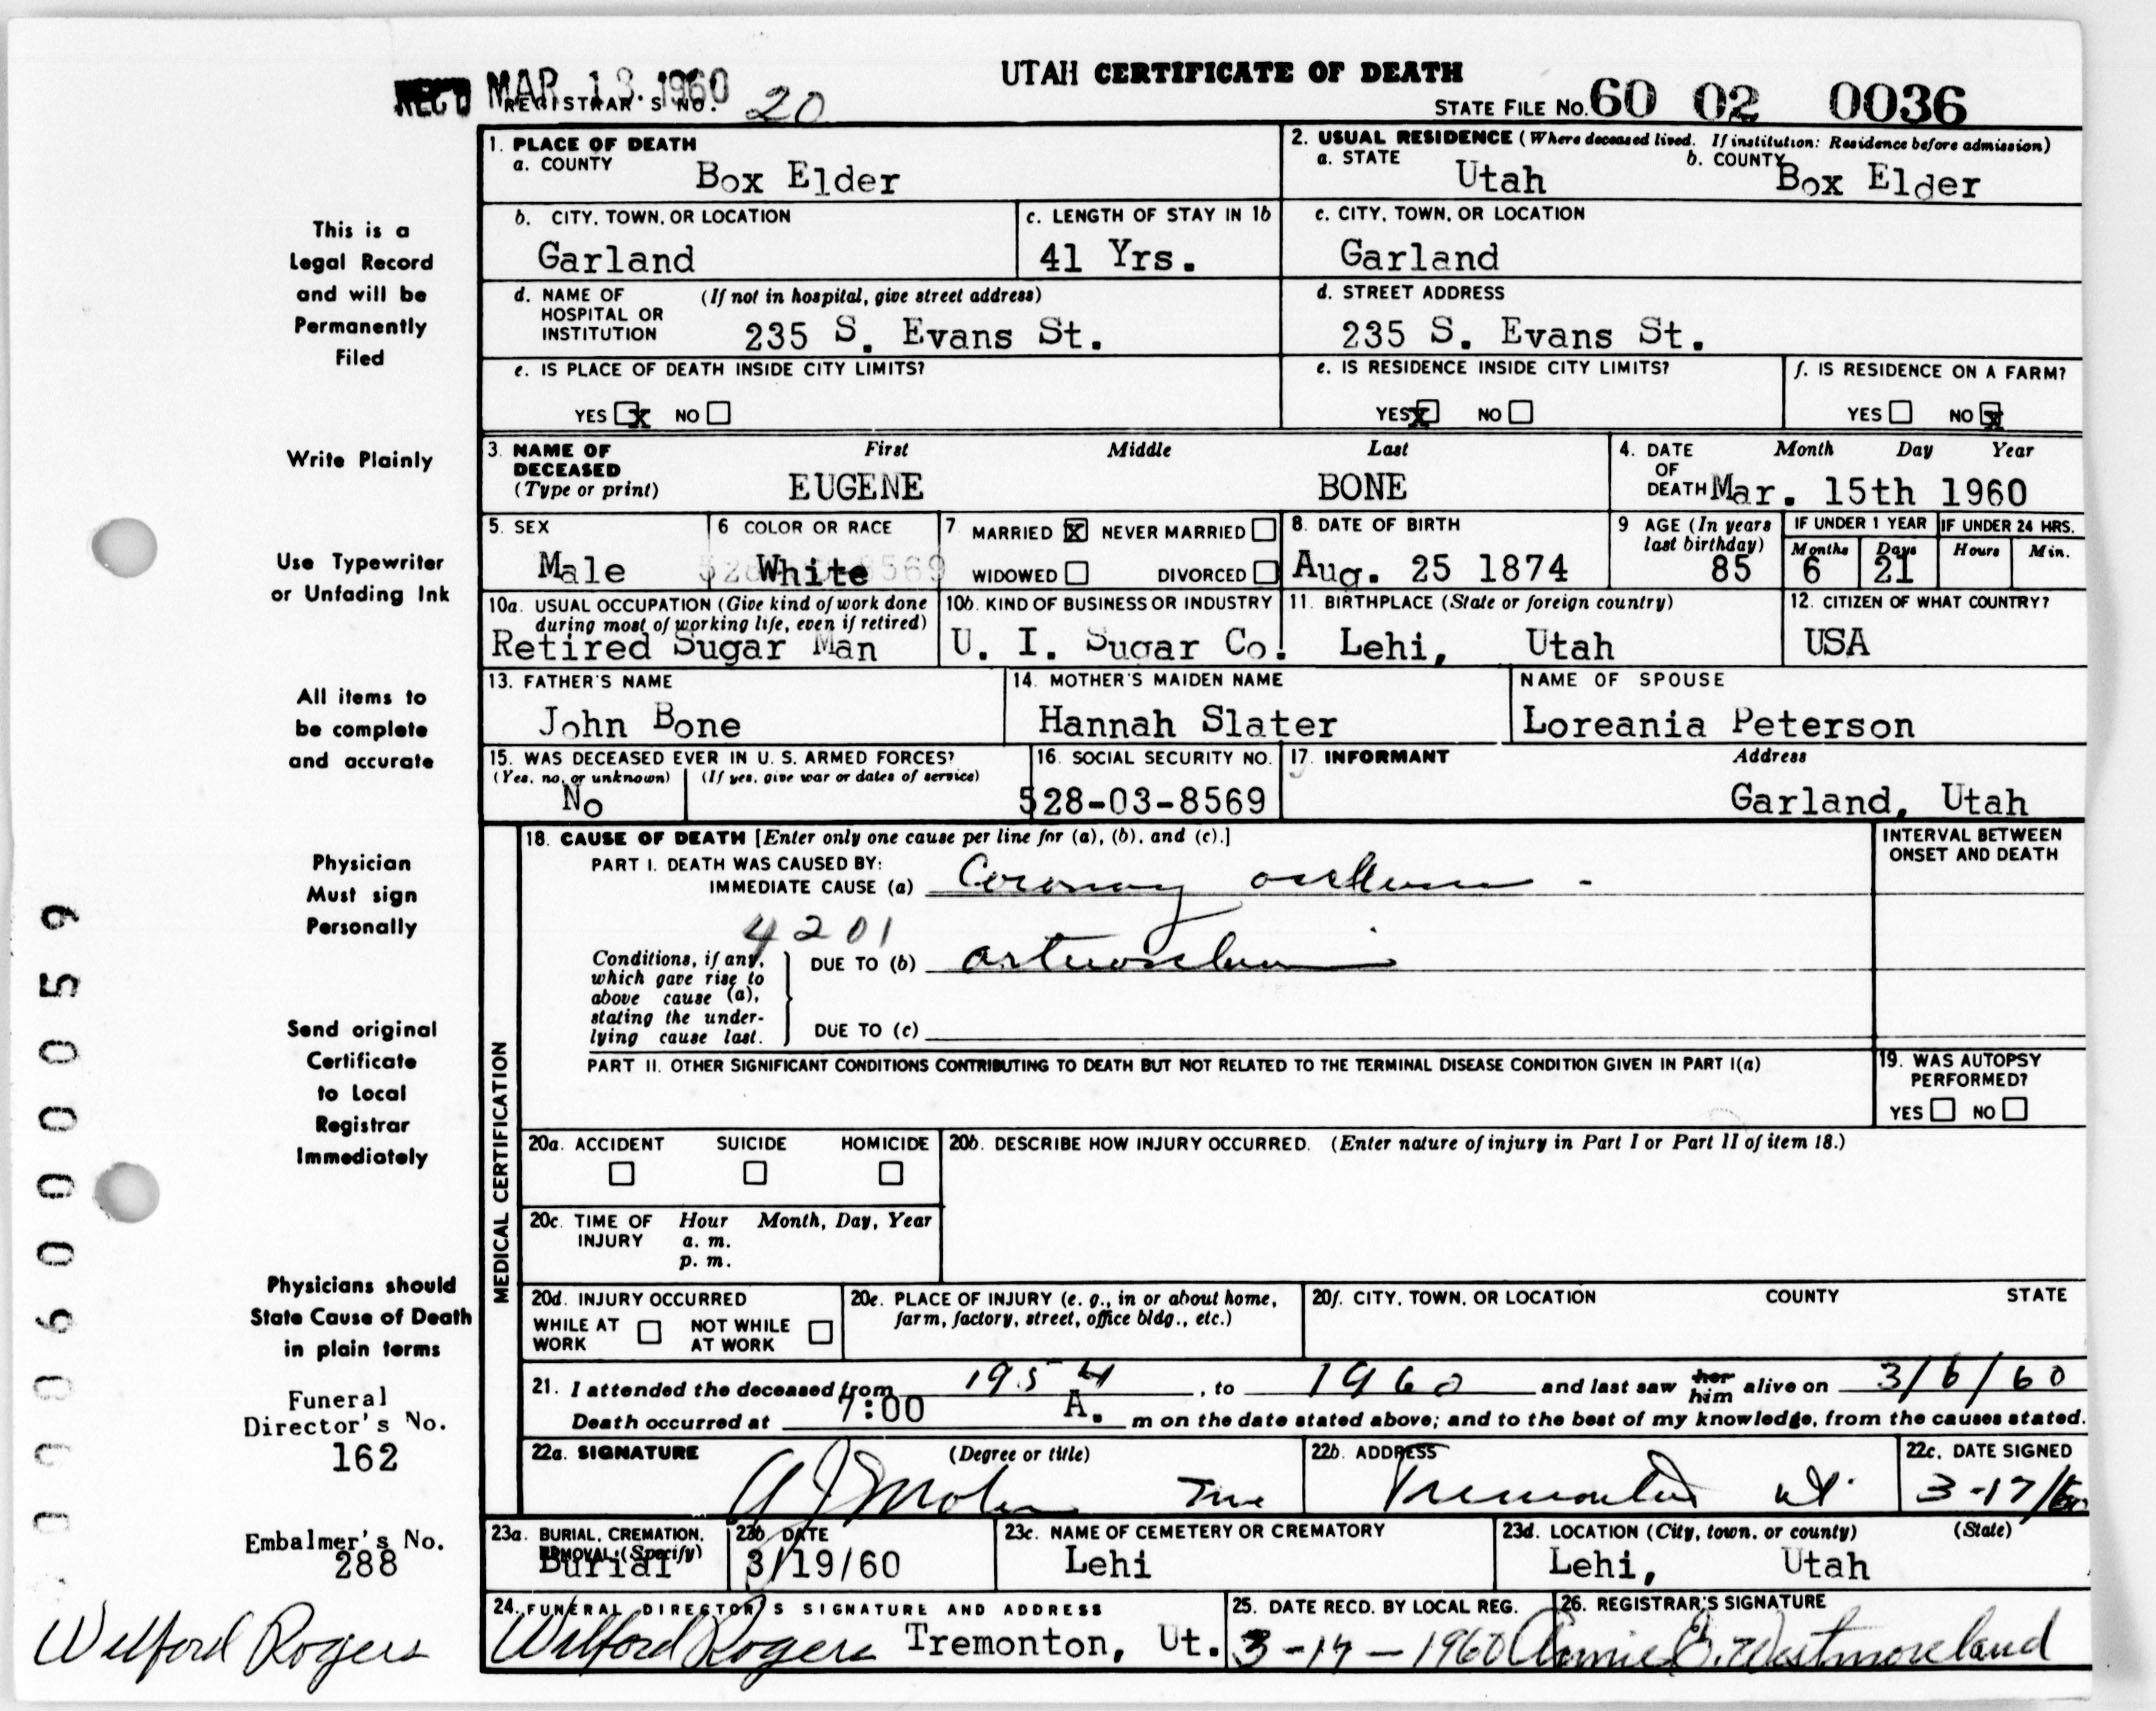 UTAH CERTIFICATE OF DEATH
REC'D MAR 18. 1960
REGISTRAR'S NO. 20
STATE FILE No. 60 02 0036
1. PLACE OF DEATH
a. COUNTY Box Elder
2. USUAL RESIDENCE (Where deceased lived. If institution: Residence before admission)
a. STATE Utah b. COUNTY Box Elder
b. CITY, TOWN, OR LOCATION Garland
c. LENGTH OF STAY IN 1b 41 Yrs.
c. CITY, TOWN, OR LOCATION Garland
d. NAME OF HOSPITAL OR INSTITUTION (If not in hospital, give street address) 235 S. Evans St.
d. STREET ADDRESS 235 S. Evans St.
e. IS PLACE OF DEATH INSIDE CITY LIMITS? YES x NO
e. IS RESIDENCE INSIDE CITY LIMITS? YES x NO
f. IS RESIDENCE ON A FARM? YES NO x
3. NAME OF DECEASED (Type or print) First Middle Last
EUGENE BONE
4. DATE OF DEATH Month Day Year
Mar. 15th 1960
5. SEX Male
6 COLOR OR RACE White
7 MARRIED X NEVER MARRIED WIDOWED DIVORCED
8. DATE OF BIRTH Aug. 25 1874
9 AGE (In years last birthday) 85
IF UNDER 1 YEAR Months 6 Days 21
IF UNDER 24 HRS. Hours Min.
10a. USUAL OCCUPATION (Give kind of work done during most of working life, even if retired) Retired Sugar Man
10b. KIND OF BUSINESS OR INDUSTRY U. I. Sugar Co.
11. BIRTHPLACE (State or foreign country) Lehi, Utah
12. CITIZEN OF WHAT COUNTRY? USA
13. FATHER'S NAME John Bone
14. MOTHER'S MAIDEN NAME Hannah Slater
NAME OF SPOUSE Loreania Peterson
15. WAS DECEASED EVER IN U. S. ARMED FORCES? (Yes, no, or unknown) (If yes, give war or dates of service) No
16. SOCIAL SECURITY NO. 528-03-8569
17. INFORMANT Address Garland, Utah
MEDICAL CERTIFICATION
18. CAUSE OF DEATH [Enter only one cause per line for (a), (b), and (c).]
INTERVAL BETWEEN ONSET AND DEATH
PART I. DEATH WAS CAUSED BY:
IMMEDIATE CAUSE (a) Coronary
4201
Conditions, if any, which gave rise to above cause (a), stating the underlying cause last.
DUE TO (b)
DUE TO (c)
PART II. OTHER SIGNIFICANT CONDITIONS CONTRIBUTING TO DEATH BUT NOT RELATED TO THE TERMINAL DISEASE CONDITION GIVEN IN PART I(a)
19. WAS AUTOPSY PERFORMED? YES NO
20a. ACCIDENT SUICIDE HOMICIDE
20b. DESCRIBE HOW INJURY OCCURRED. (Enter nature of injury in Part I or Part II of item 18.)
20c. TIME OF INJURY Hour Month, Day, Year
a. m.
p. m.
20d. INJURY OCCURRED WHILE AT WORK NOT WHILE AT WORK
20e. PLACE OF INJURY (e. g., in or about home, farm, factory, street, office bldg., etc.)
20f. CITY, TOWN, OR LOCATION COUNTY STATE
21. I attended the deceased from 1954, to 1960 and last saw her him alive on 3/6/60
Death occurred at 7:00 A. m on the date stated above; and to the best of my knowledge, from the causes stated.
22a. SIGNATURE (Degree or title)
22b. ADDRESS Tremonton Ut.
22c. DATE SIGNED 3-17/60
23a. BURIAL, CREMATION, REMOVAL (Specify) Burial
23b DATE 3/19/60
23c. NAME OF CEMETERY OR CREMATORY Lehi
23d. LOCATION (City, town, or county) (State) Lehi, Utah
24. FUNERAL DIRECTOR'S SIGNATURE AND ADDRESS Wilford Rogers Tremonton, Ut.
25. DATE RECD. BY LOCAL REG. 3-17-1960
26. REGISTRAR'S SIGNATURE Annie G. Westmoreland
This is a
Legal Record
and will be
Permanently
Filed
Write Plainly
Use Typewriter
or Unfading Ink
All items to
be complete
and accurate
Physician
Must sign
Personally
Send original
Certificate
to Local
Registrar
Immediately
Physicians should
State Cause of Death
in plain terms
Funeral
Director's No.
162
Embalmer's No.
288
Wilford Rogers